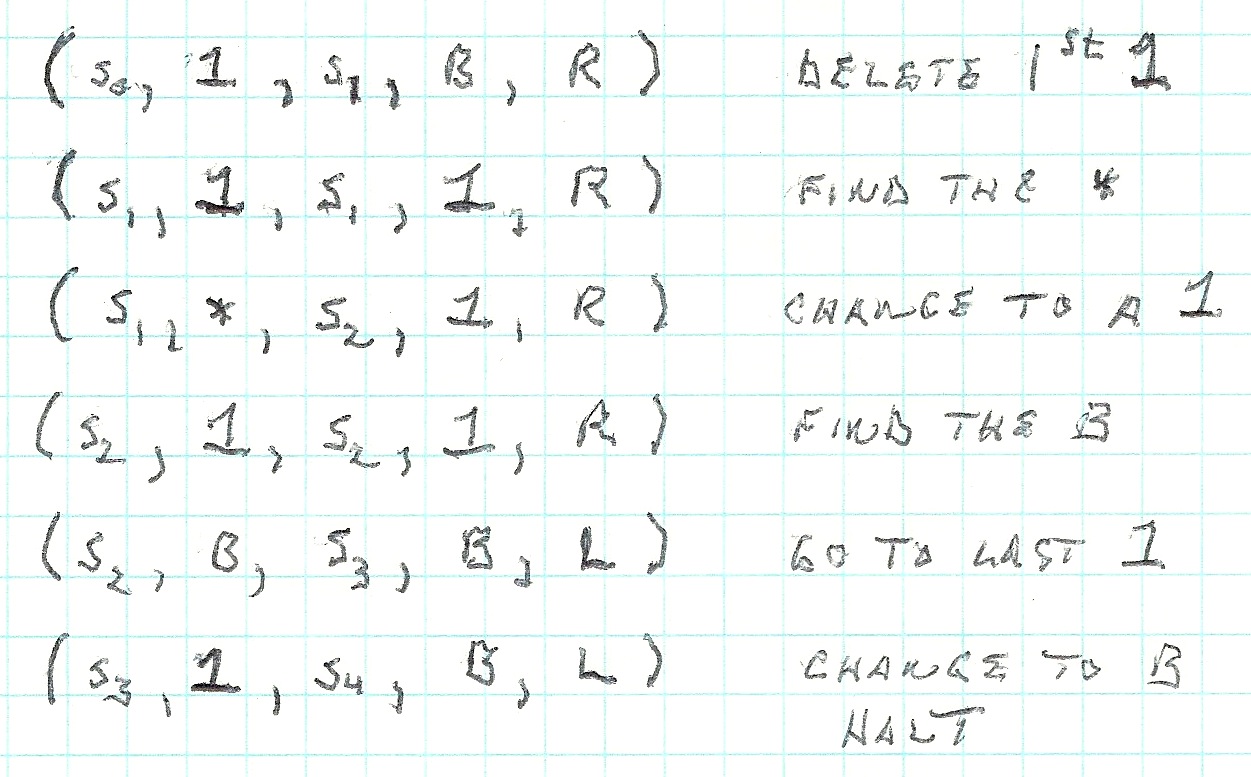 (s₀, 1, s₁, B, R) DELETE 1st 1
(s₁, 1, s₁, 1, R) FIND THE *
(s₁, *, s₂, 1, R) CHANGE TO A 1
(s₂, 1, s₂, 1, R) FIND THE B
(s₂, B, s₃, B, L) GO TO LAST 1
(s₃, 1, s₄, B, L) CHANGE TO B
HALT